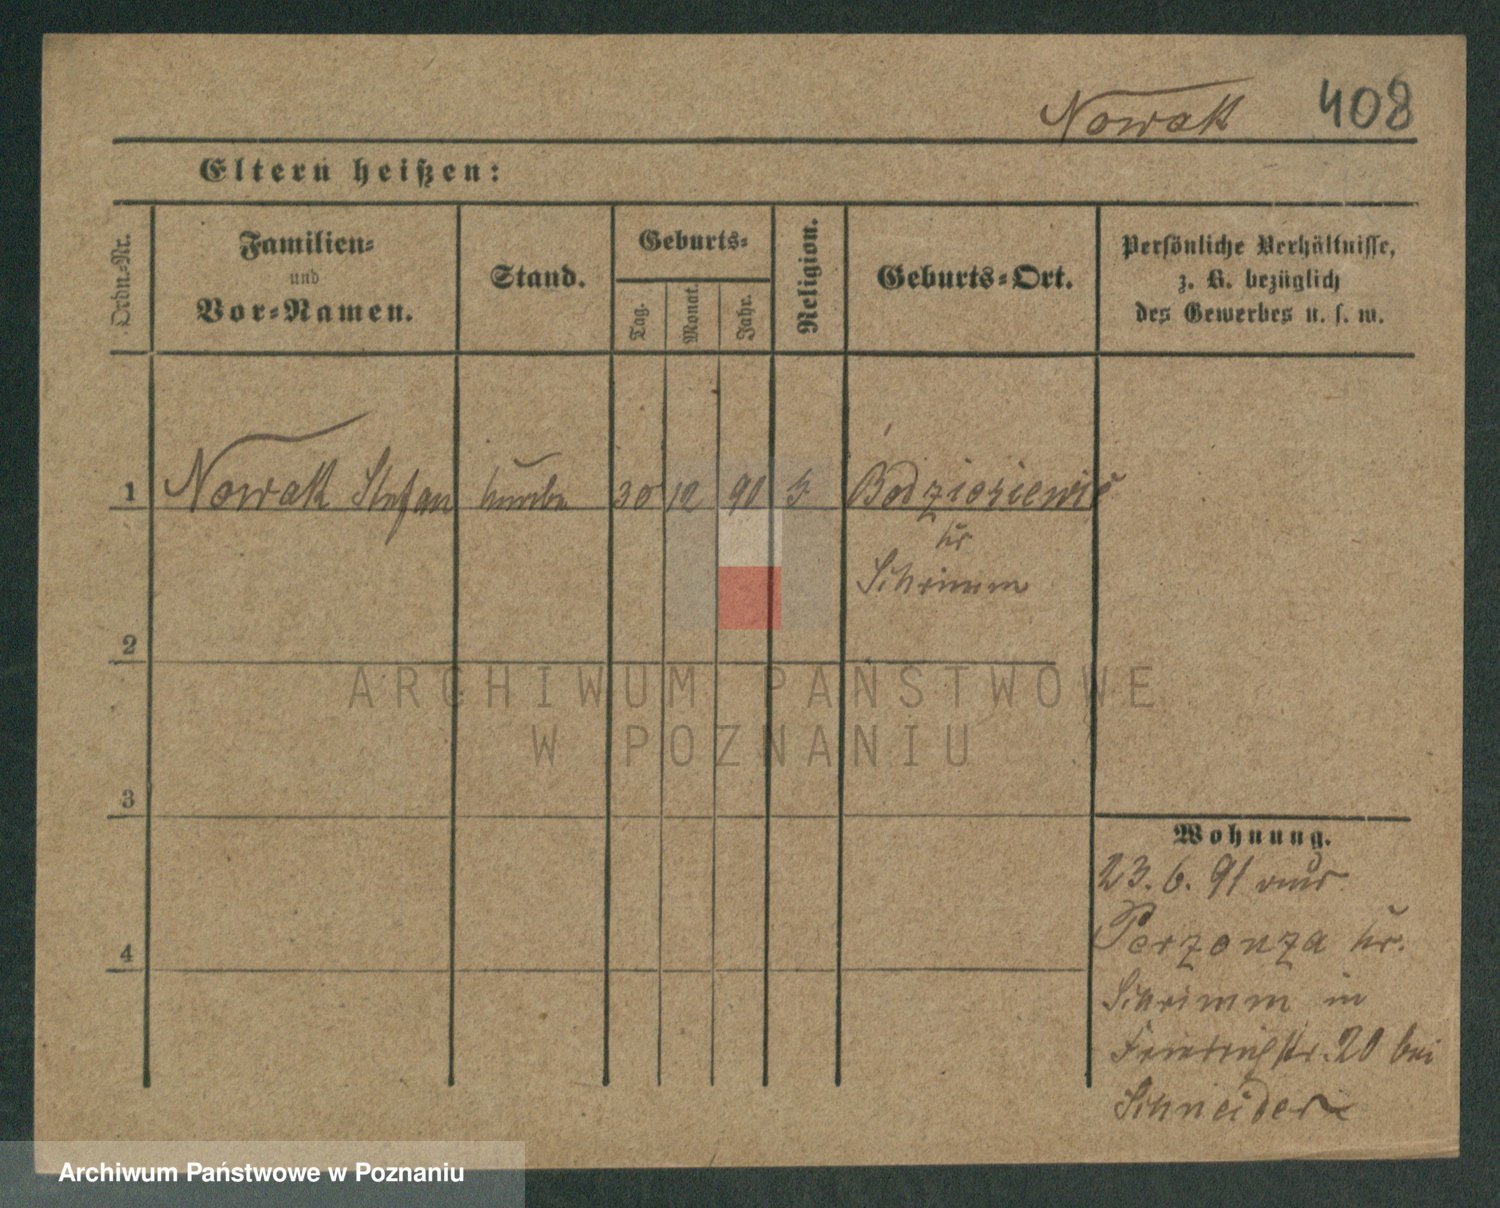 Nowak 408
Eltern heißen:
Ordn.-Nr.
Familien-
und
Vor-Namen.
Stand.
Geburts-
Tag.
Monat.
Jahr.
Religion.
Geburts-Ort.
Persönliche Verhältnisse,
z. B. bezüglich
des Gewerbes u. s. w.
1 Nowak Stefan 30 12 90
Kr
Schrimm
2
ARCHIWUM PAŃSTWOWE
W POZNANIU
3
Wohnung.
23. 6. 91 aus
Kr.
4
Schrimm in
Friedrichstr. 20 bei
Schneider
Archiwum Państwowe w Poznaniu